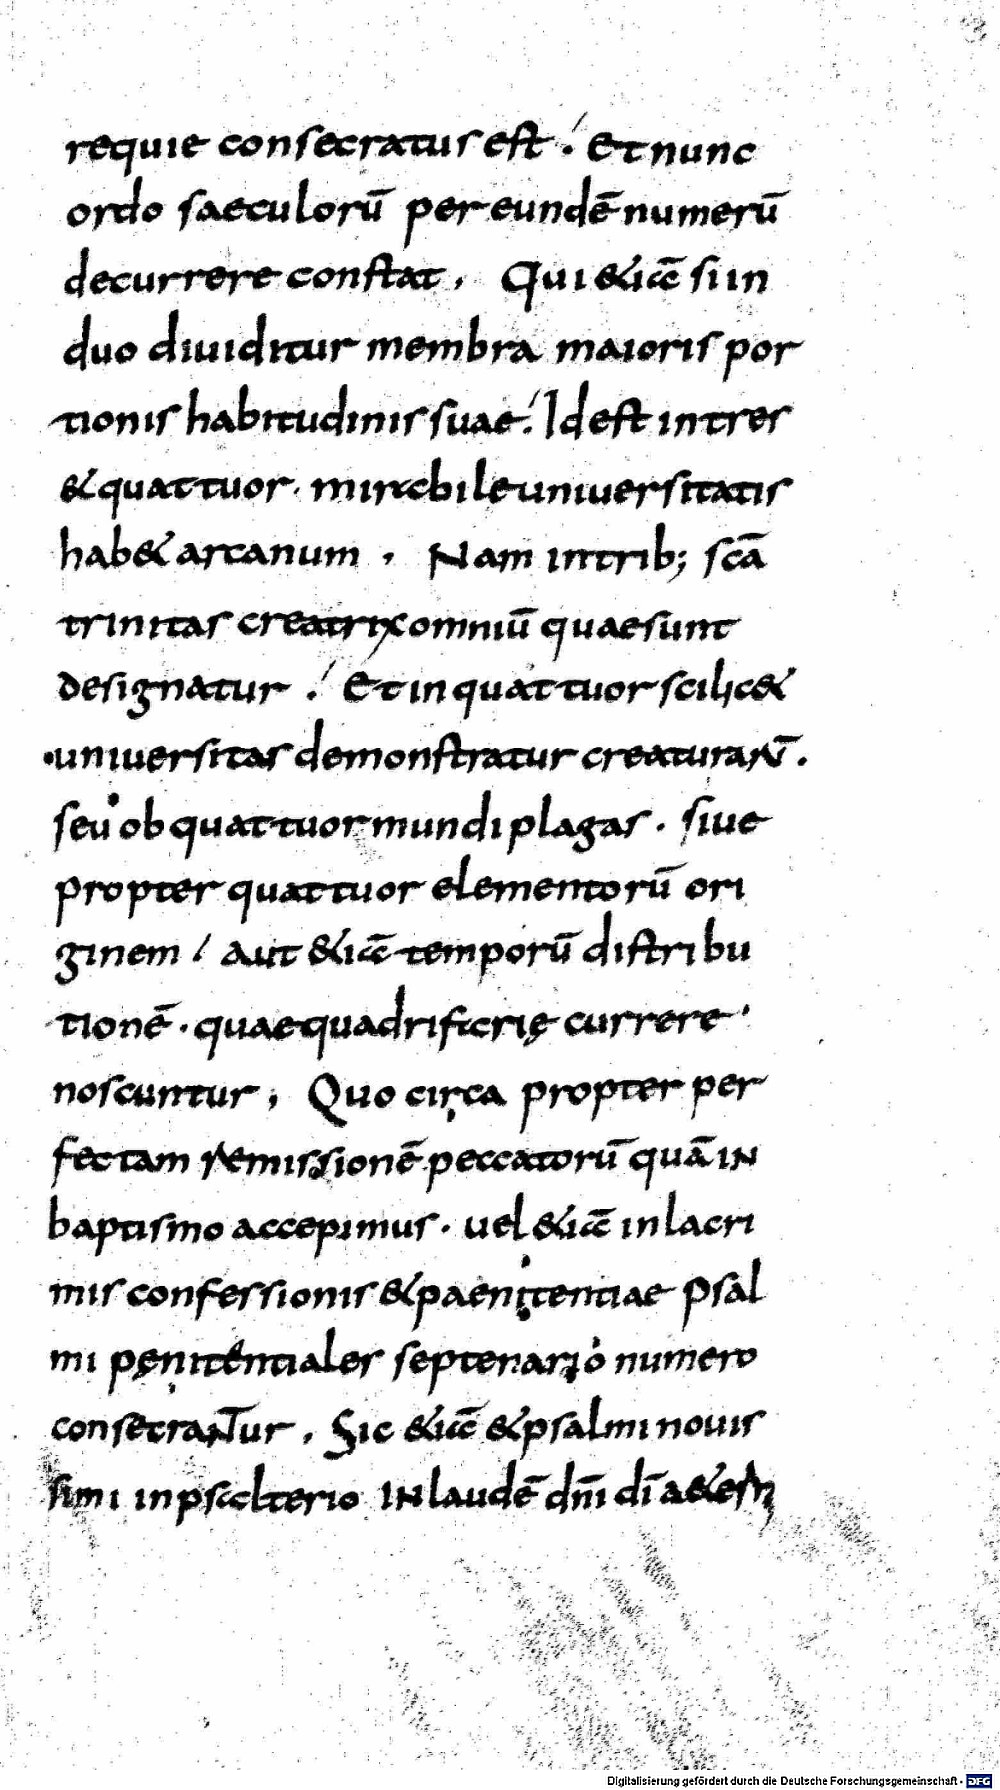 requie consecratus est ⁏ Et nunc
ordo saeculorū per eundē numerū
decurrere constat, Qui &iā si in
duo diuiditur membra maioris por
tionis habitudinis suae ⁏ Id est in tres
& quattuor· mirabile uniuersitatis
hab& arcanum, Nam in trib; scā
trinitas creatrix omniū quae sunt
designatur ⁏ Et in quattuor scilic&
uniuersitas demonstratur creaturarū.
seu ob quattuor mundi plagas· siue
propter quattuor elementorū ori
ginem / aut &iā temporū distribu
tionē· quae quadrifarię currere
noscuntur, Quo circa propter per
fectam remissionē peccatorū quā in
baptismo accepimus· uel &iā in lacri
mis confessionis & paenitentiae psal
mi pęnitentiales septenario numero
consecrantur, Sic &iā & psalmi nouis
simi in psalterio in laudē dn̄i dī
Digitalisierung gefördert durch die Deutsche Forschungsgemeinschaft - DFG